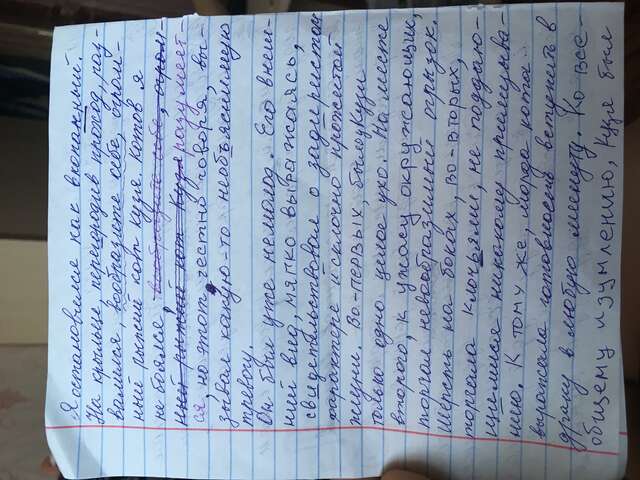 Я остановился как вкопанный.
На крыльце, перегородив проход, раз-
валился, вообразите себе, огром-
ный рыжий кот Кузя. Котов я
не боялся, вообразите себе, огром-
ный рыжий кот Кузя разумеет-
ся, но этот, честно говоря, вы-
зывал какую-то необъяснимую
тревогу.
Он был уже немолод. Его внеш-
ний вид, мягко выражаясь,
свидетельствовал о задиристом
характере и склочно прожитой
жизни. Во-первых, было у Кузи
только одно целое ухо. На месте
второго, к ужасу окружающих,
торчал невообразимый огрызок.
Шерсть на боках, во-вторых,
торчала клочьями, не поддаю-
щимися никакому приглажива-
нию. К тому же, морда кота
выражала готовность вступить в
драку в любую минуту. Ко все-
общему изумлению, Кузя был